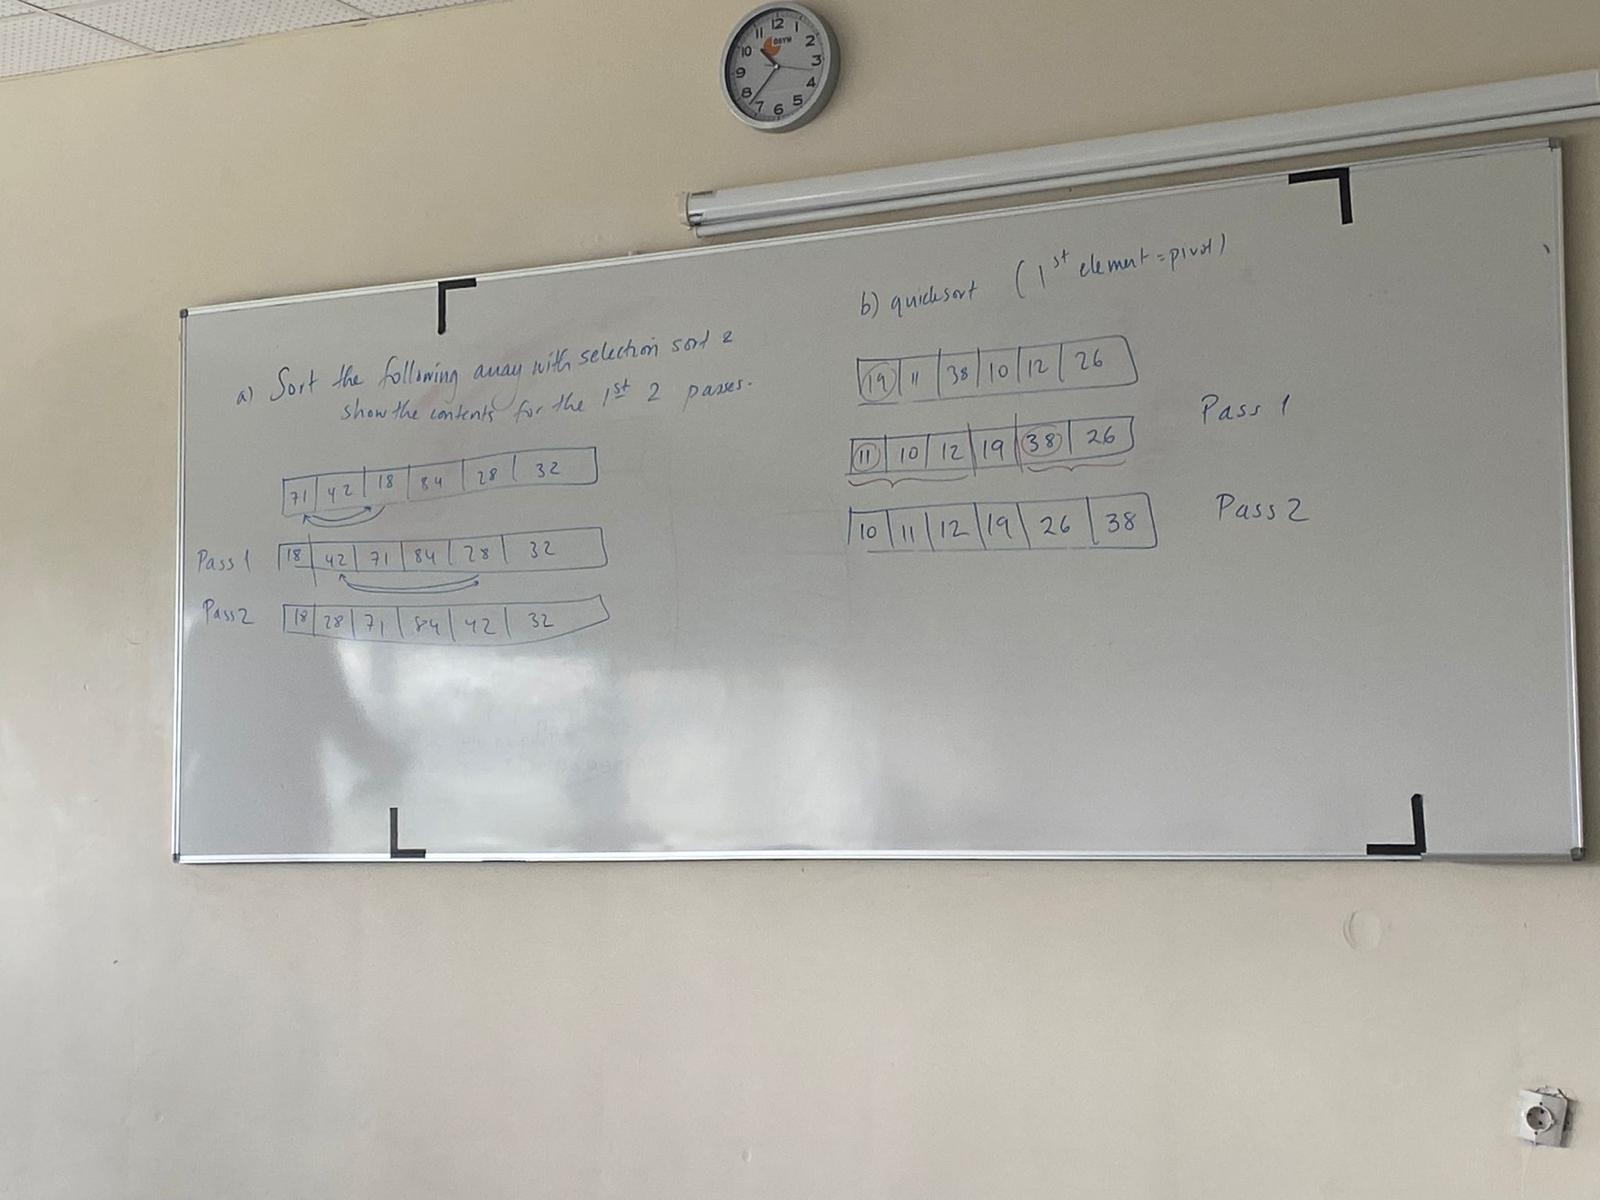 12
1
2
3
4
5
6
7
8
9
10
11
ÖSYM
a) Sort the following array with selection sort &
show the contents for the 1st 2 passes.
71 42 18 84 28 32
Pass 1 18 42 71 84 28 32
Pass 2 18 28 71 84 42 32
b) quicksort (1st element = pivot)
19 11 38 10 12 26
11 10 12 19 38 26 Pass 1
10 11 12 19 26 38 Pass 2